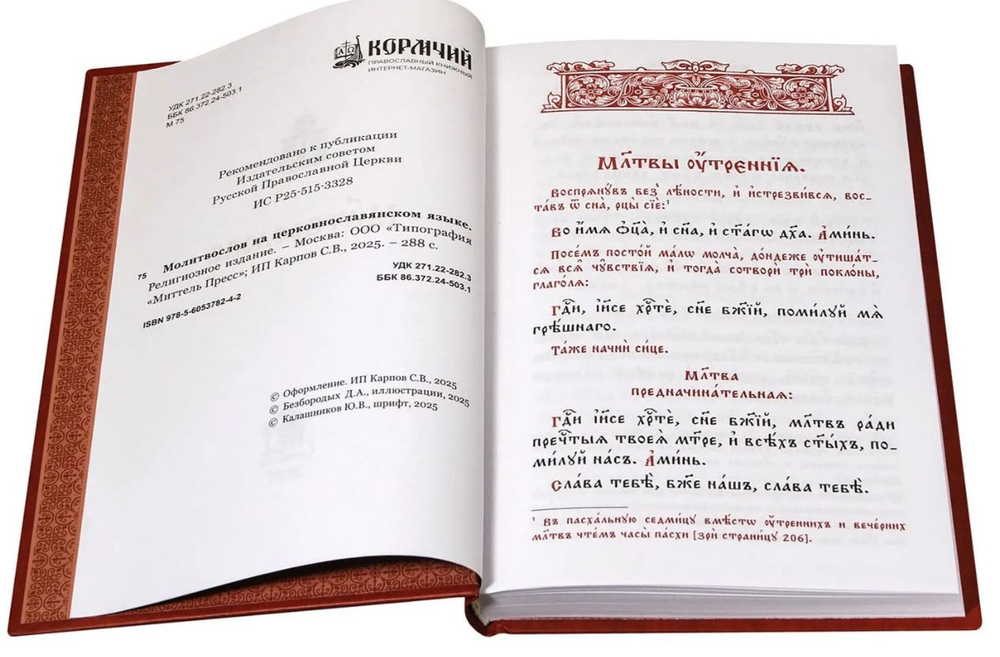 КОРМЧИЙ
ПРАВОСЛАВНЫЙ КНИЖНЫЙ
ИНТЕРНЕТ-МАГАЗИН
УДК 271.22-282.3
ББК 86.372.24-503.1
М 75
Рекомендовано к публикации
Издательским советом
Русской Православной Церкви
ИС Р25-515-3328
Молитвослов на церковнославянском языке.
75 Религиозное издание. – Москва: ООО «Типография
«Миттель Пресс»; ИП Карпов С.В., 2025. – 288 с.
УДК 271.22-282.3
ББК 86.372.24-503.1
ISBN 978-5-6053782-4-2
© Оформление. ИП Карпов С.В., 2025
© Безбородых Д.А., иллюстрации, 2025
© Калашников Ю.В., шрифт, 2025
Мл҃твы ᲂу҆́треннїѧ.
Воспрѧнꙋ́въ без̾ лѣ́ности, и҆ и҆стрезви́всѧ, вос-
та́въ ѿ сна̀, рцы̀ сїѐ:¹
Во и҆́мѧ ѻ҆ц҃а̀, и҆ сн҃а, и҆ ст҃а́гѡ дх҃а. А҆ми́нь.
Посе́мъ посто́й ма́лѡ молча̀, до́ндеже ᲂу҆тиша́т-
сѧ всѧ̑ чꙋ̑вствїѧ, и҆ тогда̀ сотворѝ трѝ покло́ны,
глаго́лѧ:
Гдⷭ҇и, і҆и҃се хрⷭ҇тѐ, сн҃е бж҃їй, поми́лꙋй мѧ̀
грѣ́шнаго.
Та́же начнѝ си́це.
Мл҃тва
предначина́тельнаѧ:
Гдⷭ҇и і҆и҃се хрⷭ҇тѐ, сн҃е бж҃їй, мл҃твъ ра́ди
пречⷭ҇тыѧ твоеѧ̀ мт҃ре, и҆ всѣ́хъ ст҃ы́хъ, по-
ми́лꙋй на́съ. А҆ми́нь.
Сла́ва тебѣ̀, бж҃е на́шъ, сла́ва тебѣ̀.
¹ Въ пасха́льную седми́цꙋ вмѣ́стѡ ᲂу҆́треннихъ и вече́рнихъ
мл҃твъ чте́мъ часы̀ па́схи [зрѝ страни́цꙋ 206].